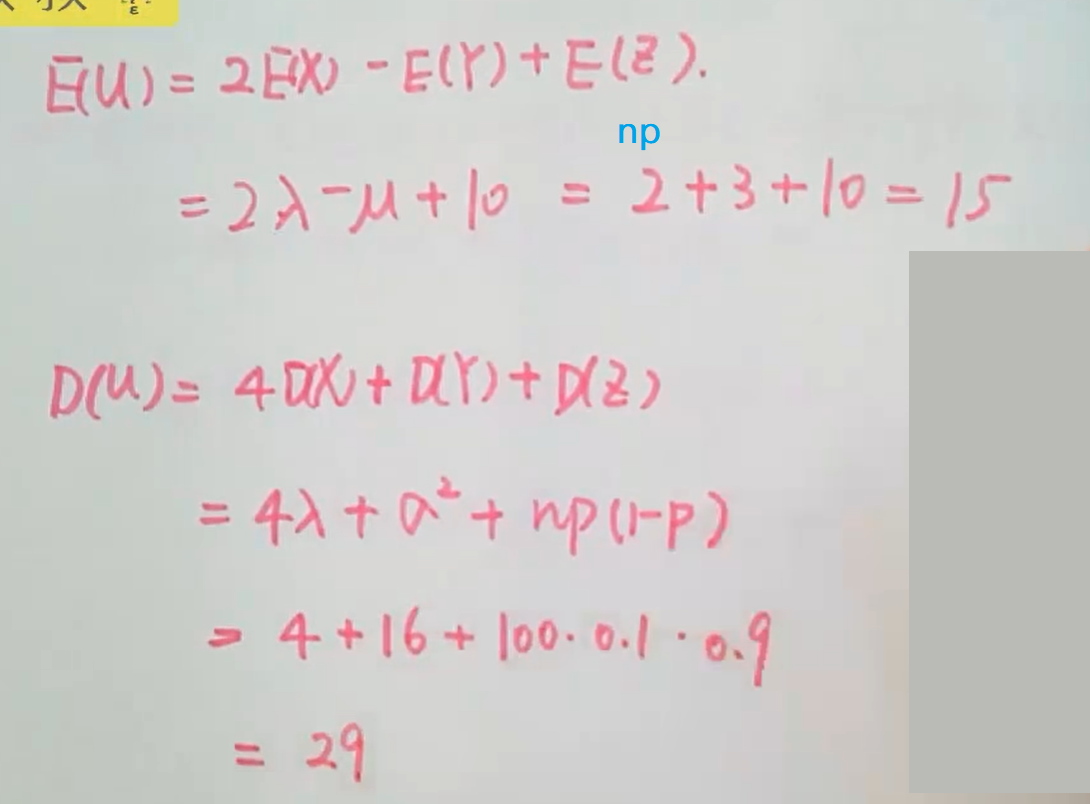 E(U) = 2E(X) - E(Y) + E(Z).
np
= 2λ - μ + 10 = 2 + 3 + 10 = 15
D(U) = 4D(X) + D(Y) + D(Z)
= 4λ + σ² + np(1-p)
= 4 + 16 + 100·0.1·0.9
= 29